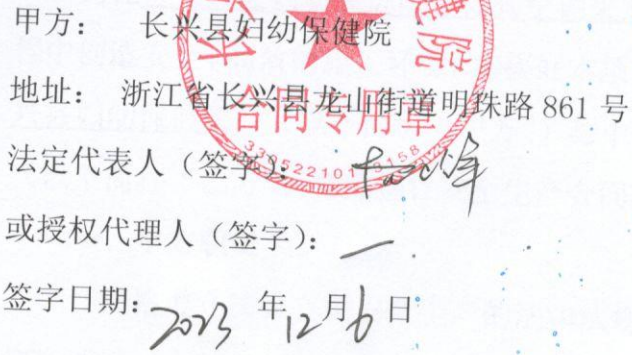 甲方： 长兴县妇幼保健院
地址： 浙江省长兴县龙山街道明珠路 861 号
合同专用章
法定代表人（签字）：
或授权代理人（签字）： 一
签字日期：2023 年 12 月 6 日